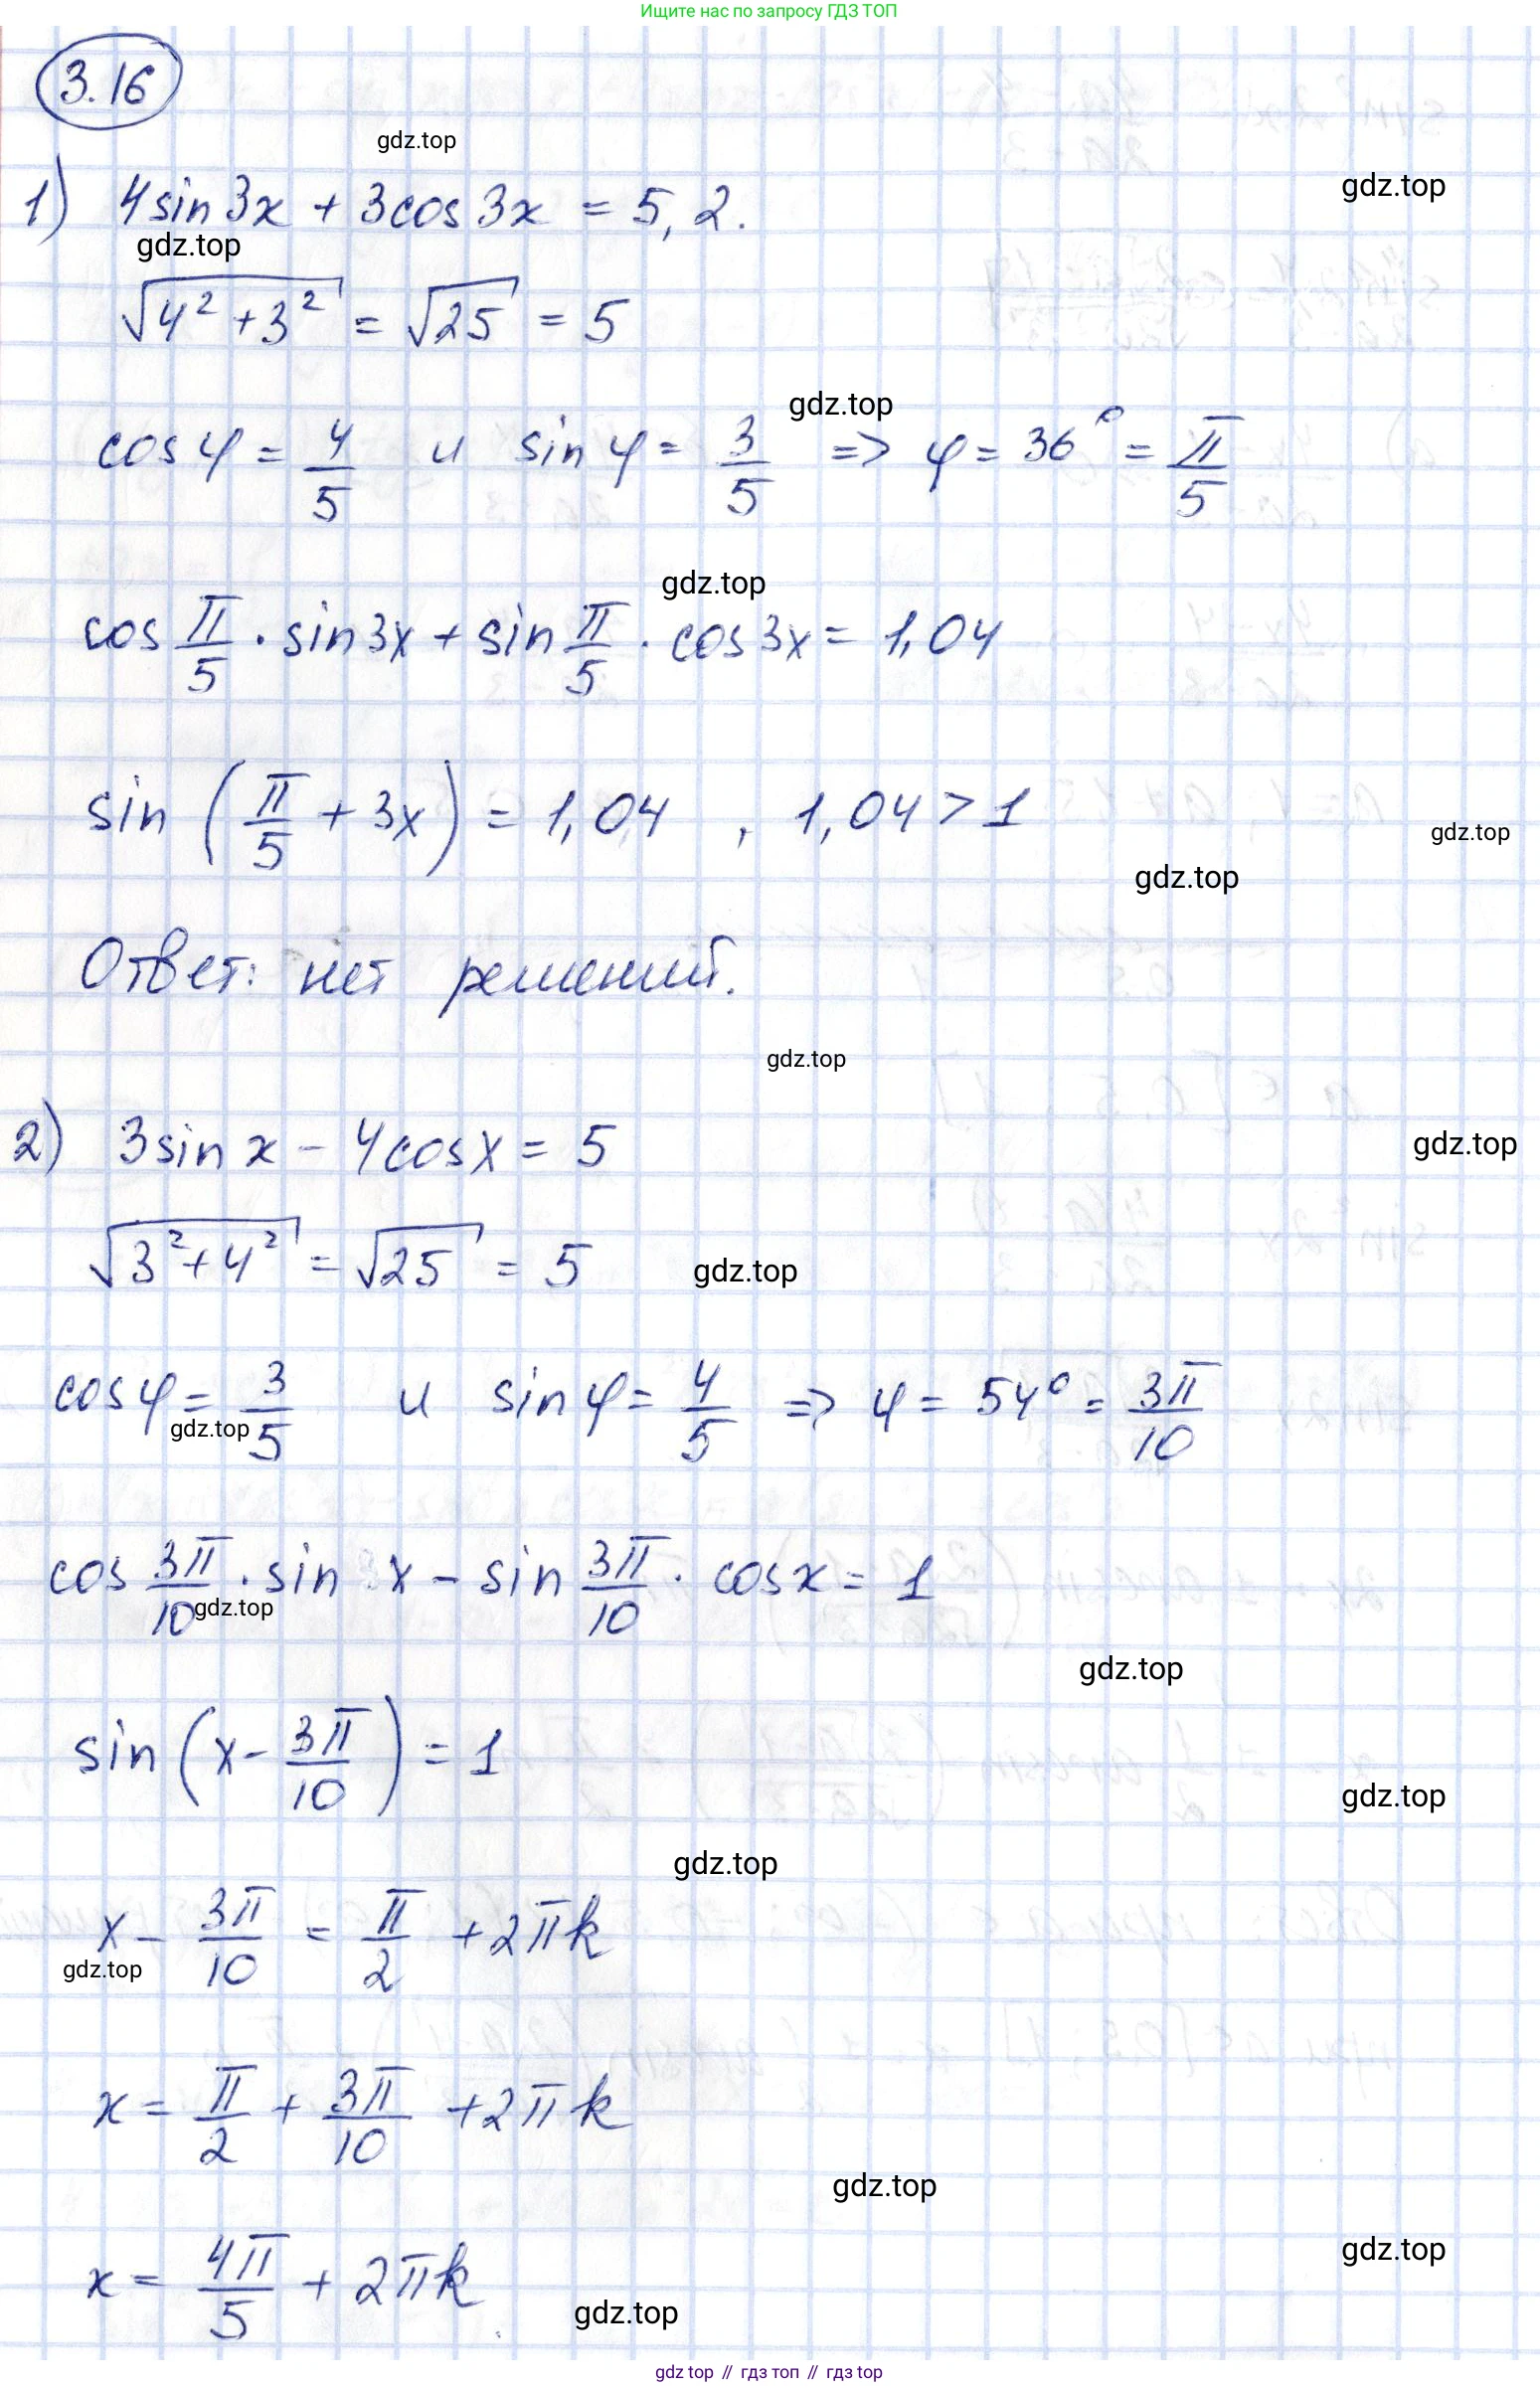 Ищите нас по запросу ГДЗ ТОП
3.16
gdz.top
gdz.top
1) 4sin3x + 3cos3x = 5,2.
gdz.top
√(4² + 3²) = √25 = 5
gdz.top
cos φ = 4/5 и sin φ = 3/5 => φ = 36° = π/5
gdz.top
cos π/5 · sin3x + sin π/5 · cos3x = 1,04
sin (π/5 + 3x) = 1,04 , 1,04 > 1
gdz.top
gdz.top
Ответ: нет решений.
gdz.top
2) 3sin x - 4cosx = 5
gdz.top
√(3² + 4²) = √25 = 5
gdz.top
cos φ = 3/5 и sin φ = 4/5 => φ = 54° = 3π/10
gdz.top
cos 3π/10 · sin x - sin 3π/10 · cosx = 1
gdz.top
gdz.top
sin (x - 3π/10) = 1
gdz.top
gdz.top
x - 3π/10 = π/2 + 2πk
gdz.top
x = π/2 + 3π/10 + 2πk
gdz.top
gdz.top
x = 4π/5 + 2πk
gdz.top
gdz top // гдз топ // gdz top